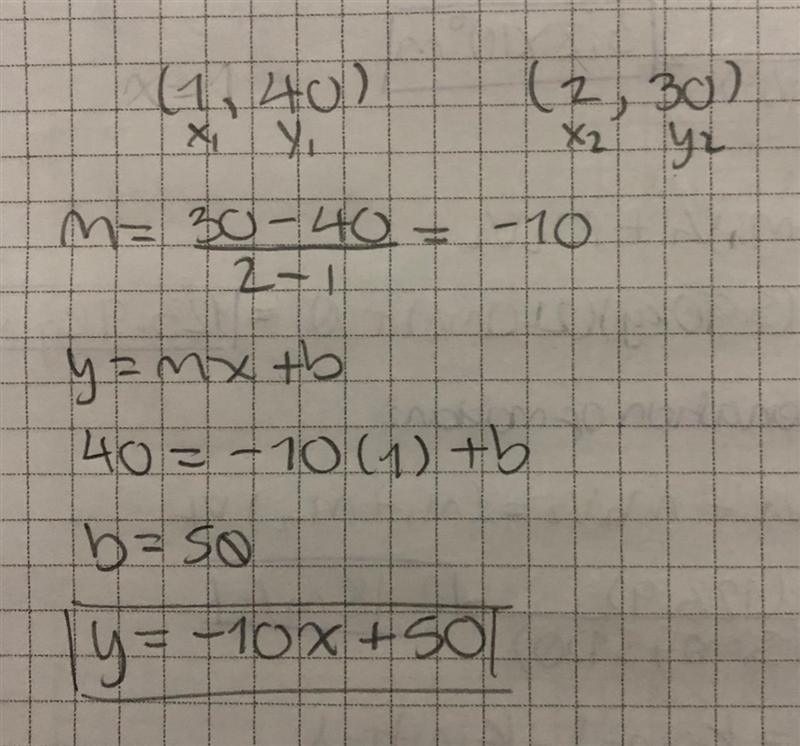 (1, 40) (2, 30)
x₁ y₁ x₂ y₂
m = 30 - 40 / 2 - 1 = -10
y = mx + b
40 = -10(1) + b
b = 50
y = -10x + 50